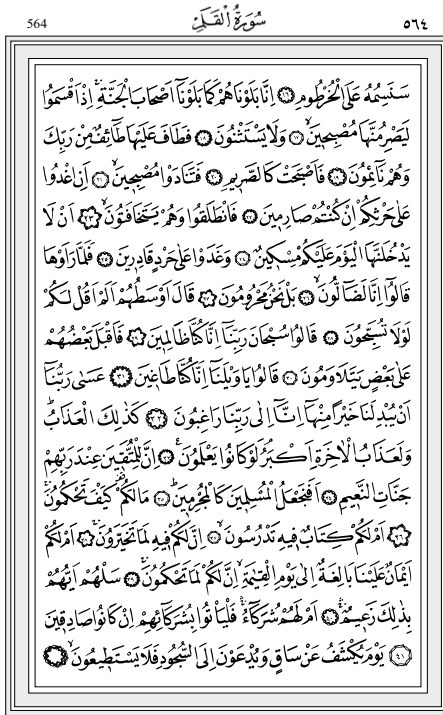 564 سُورَةُ الْقَلَمِ ٥٦٤
سَنَسِمُهُ عَلَى الْخُرْطُومِ ﴿١٦﴾ اِنَّا بَلَوْنَاهُمْ كَمَا بَلَوْنَٓا اَصْحَابَ الْجَنَّةِۚ اِذْ اَقْسَمُوا
لَيَصْرِمُنَّهَا مُصْبِح۪ينَۙ ﴿١٧﴾ وَلَا يَسْتَثْنُونَ ﴿١٨﴾ فَطَافَ عَلَيْهَا طَٓائِفٌ مِنْ رَبِّكَ
وَهُمْ نَٓائِمُونَ ﴿١٩﴾ فَاَصْبَحَتْ كَالصَّر۪يمِۙ ﴿٢٠﴾ فَتَنَادَوْا مُصْبِح۪ينَۙ ﴿٢١﴾ اَنِ اغْدُوا
عَلٰى حَرْثِكُمْ اِنْ كُنْتُمْ صَارِم۪ينَ ﴿٢٢﴾ فَانْطَلَقُوا وَهُمْ يَتَخَافَتُونَۙ ﴿٢٣﴾ اَنْ لَا
يَدْخُلَنَّهَا الْيَوْمَ عَلَيْكُمْ مِسْك۪ينٌۙ ﴿٢٤﴾ وَغَدَوْا عَلٰى حَرْدٍ قَادِر۪ينَ ﴿٢٥﴾ فَلَمَّا رَاَوْهَا
قَالُٓوا اِنَّا لَضَٓالُّونَۙ ﴿٢٦﴾ بَلْ نَحْنُ مَحْرُومُونَ ﴿٢٧﴾ قَالَ اَوْسَطُهُمْ اَلَمْ اَقُلْ لَكُمْ
لَوْلَا تُسَبِّحُونَ ﴿٢٨﴾ قَالُوا سُبْحَانَ رَبِّنَٓا اِنَّا كُنَّا ظَالِم۪ينَ ﴿٢٩﴾ فَاَقْبَلَ بَعْضُهُمْ
عَلٰى بَعْضٍ يَتَلَاوَمُونَ ﴿٣٠﴾ قَالُوا يَا وَيْلَنَٓا اِنَّا كُنَّا طَاغ۪ينَ ﴿٣١﴾ عَسٰى رَبُّنَٓا
اَنْ يُبْدِلَنَا خَيْرًا مِنْهَٓا اِنَّٓا اِلٰى رَبِّنَا رَاغِبُونَ ﴿٣٢﴾ كَذٰلِكَ الْعَذَابُۜ
وَلَعَذَابُ الْاٰخِرَةِ اَكْبَرُۢ لَوْ كَانُوا يَعْلَمُونَ۟ ﴿٣٣﴾ اِنَّ لِلْمُتَّق۪ينَ عِنْدَ رَبِّهِمْ
جَنَّاتِ النَّع۪يمِ ﴿٣٤﴾ اَفَنَجْعَلُ الْمُسْلِم۪ينَ كَالْمُجْرِم۪ينَۜ ﴿٣٥﴾ مَا لَكُمْ۠ كَيْفَ تَحْكُمُونَۚ
﴿٣٦﴾ اَمْ لَكُمْ كِتَابٌ ف۪يهِ تَدْرُسُونَۙ ﴿٣٧﴾ اِنَّ لَكُمْ ف۪يهِ لَمَا تَخَيَّرُونَۚ ﴿٣٨﴾ اَمْ لَكُمْ
اَيْمَانٌ عَلَيْنَا بَالِغَةٌ اِلٰى يَوْمِ الْقِيٰمَةِۙ اِنَّ لَكُمْ لَمَا تَحْكُمُونَۚ ﴿٣٩﴾ سَلْهُمْ اَيُّهُمْ
بِذٰلِكَ زَع۪يمٌۚ ﴿٤٠﴾ اَمْ لَهُمْ شُرَكَٓاءُۚ فَلْيَأْتُوا بِشُرَكَٓائِهِمْ اِنْ كَانُوا صَادِق۪ينَ
﴿٤١﴾ يَوْمَ يُكْشَفُ عَنْ سَاقٍ وَيُدْعَوْنَ اِلَى السُّجُودِ فَلَا يَسْتَط۪يعُونَۙ ﴿٤٢﴾